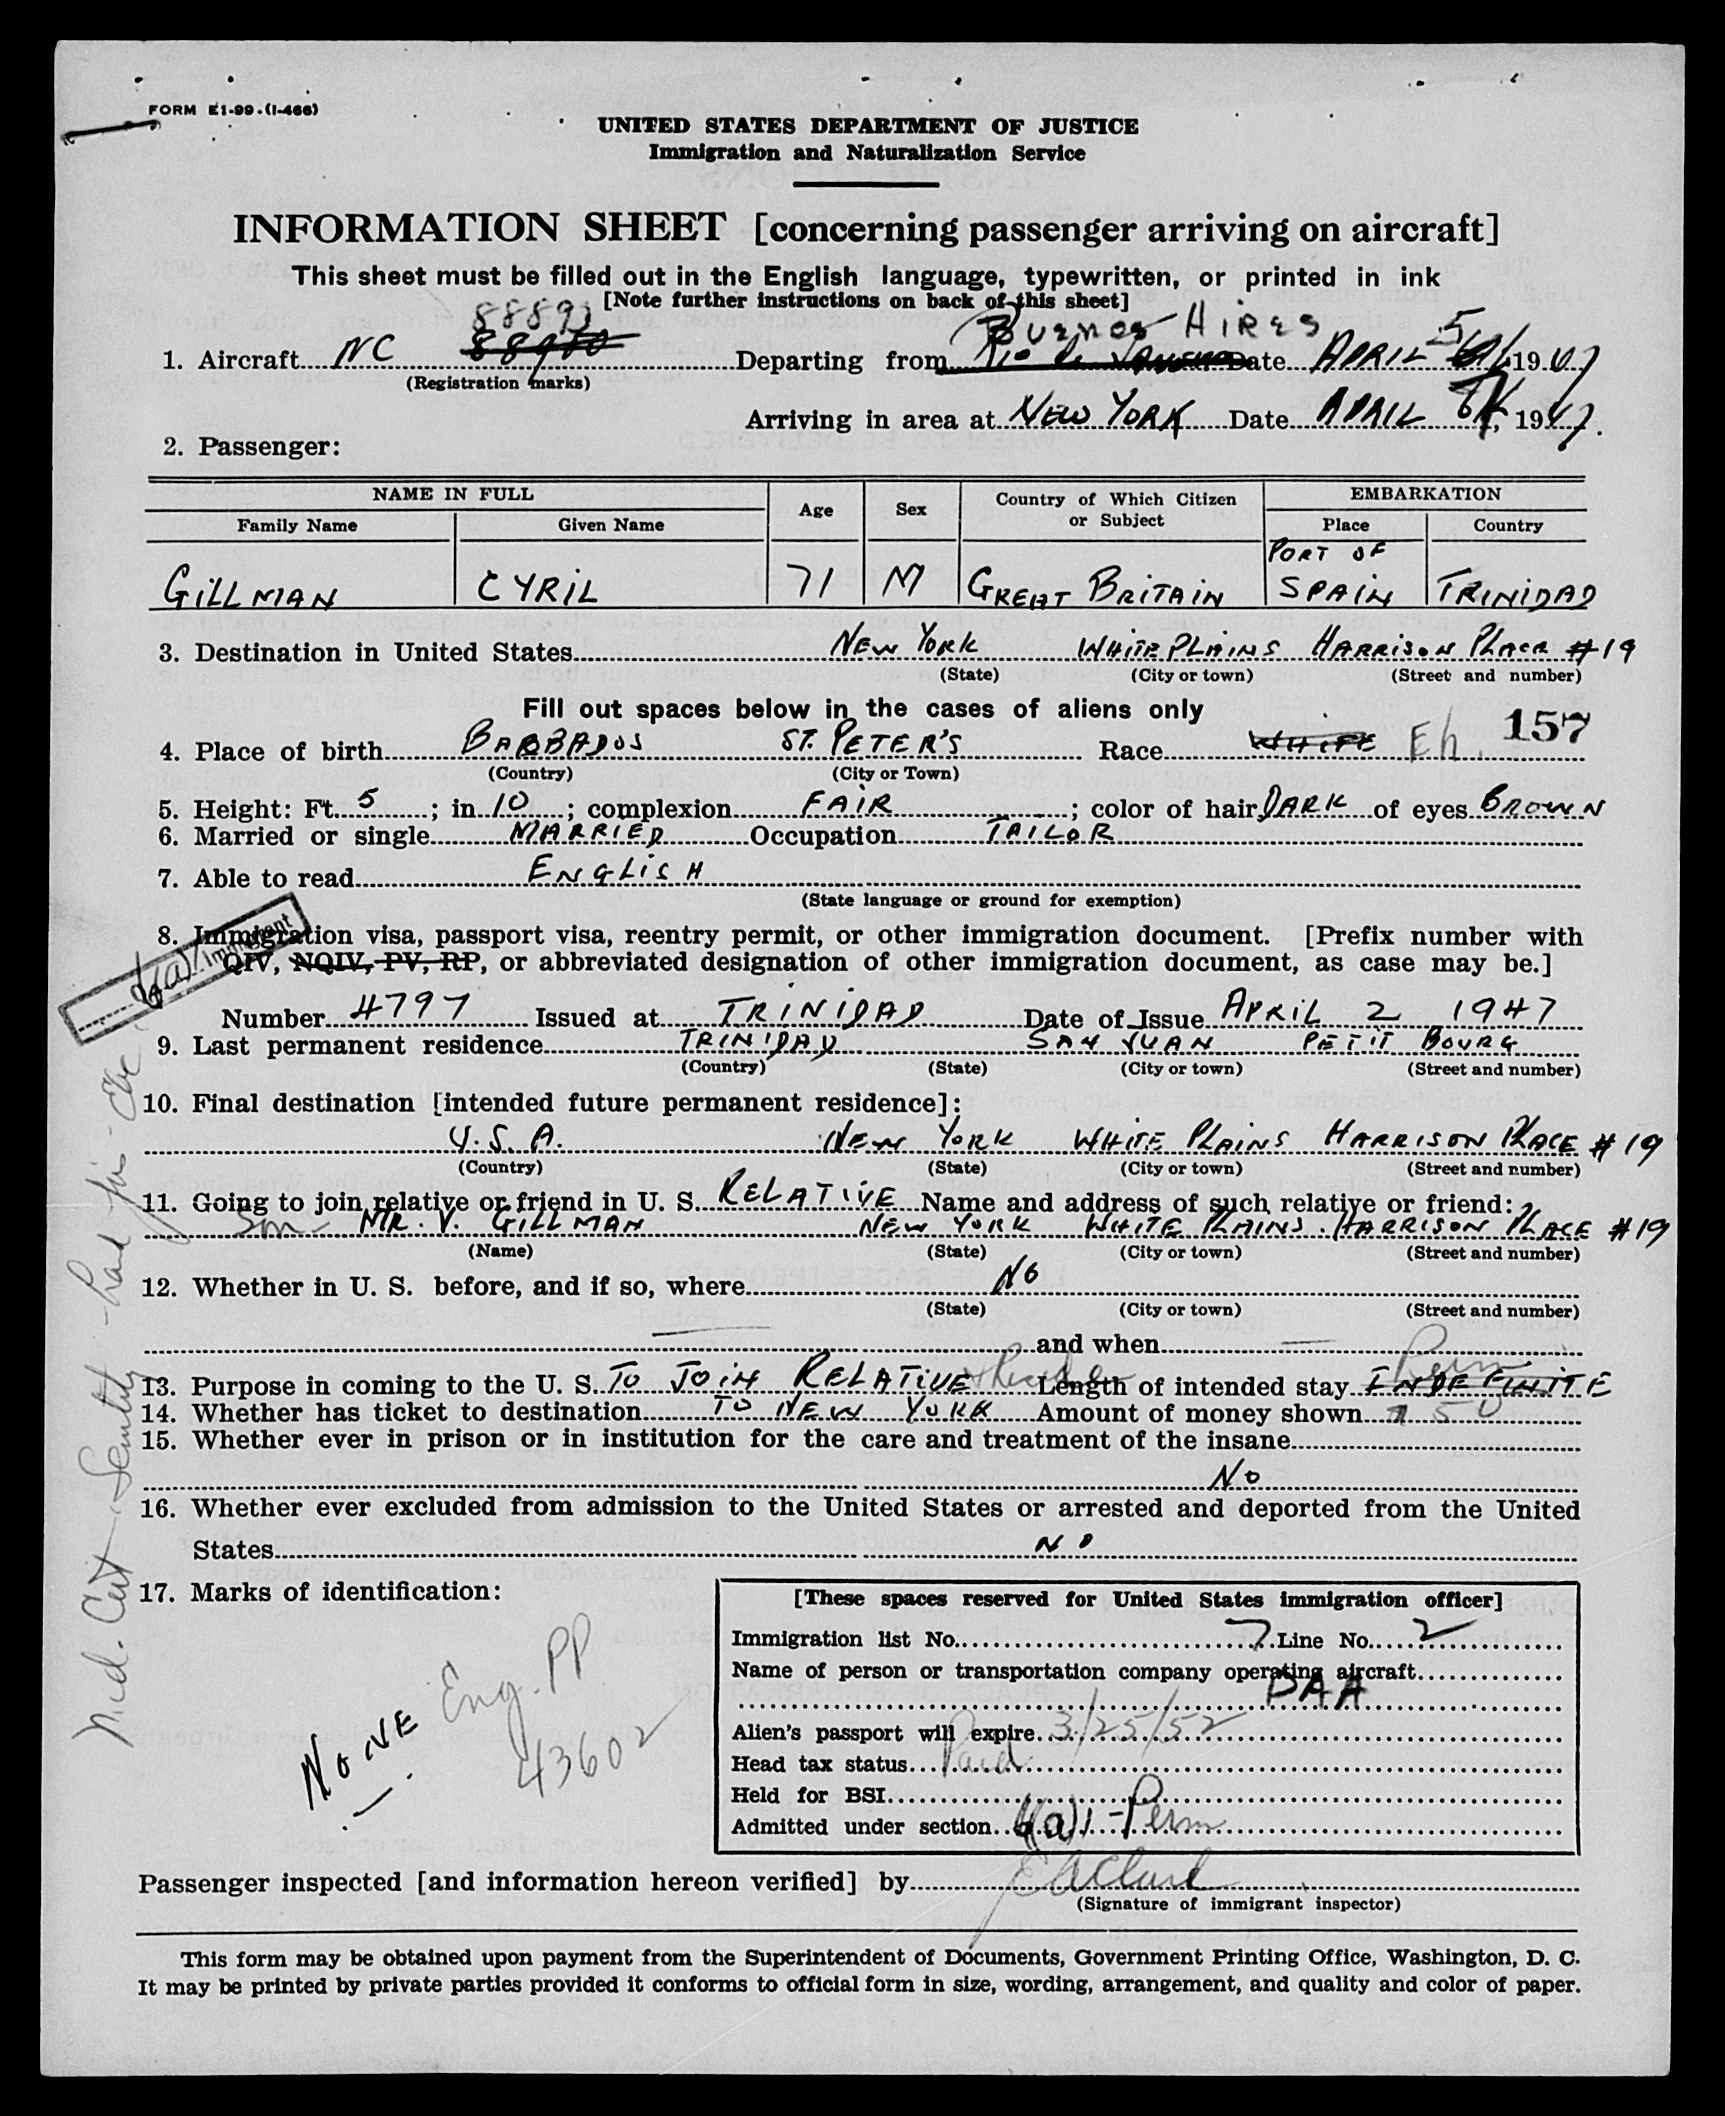 FORM E1-99-(I-466)
UNITED STATES DEPARTMENT OF JUSTICE
Immigration and Naturalization Service
INFORMATION SHEET [concerning passenger arriving on aircraft]
This sheet must be filled out in the English language, typewritten, or printed in ink
[Note further instructions on back of this sheet]
88893 Buenos Aires 5
1. Aircraft NC Departing from Rio de Date APRIL 1947
(Registration marks)
Arriving in area at NEW YORK Date APRIL 1947.
2. Passenger:
NAME IN FULL Age Sex Country of Which Citizen or Subject EMBARKATION
Family Name Given Name Place Country
GILLMAN CYRIL 71 M GREAT BRITAIN PORT OF SPAIN TRINIDAD
3. Destination in United States NEW YORK WHITE PLAINS HARRISON PLACE #19
(State) (City or town) (Street and number)
Fill out spaces below in the cases of aliens only
4. Place of birth BARBADOS ST. PETER'S Race WHITE Eh. 157
(Country) (City or Town)
5. Height: Ft. 5; in. 10; complexion FAIR; color of hair DARK of eyes BROWN
6. Married or single MARRIED Occupation TAILOR
7. Able to read ENGLISH
(State language or ground for exemption)
8. Immigration visa, passport visa, reentry permit, or other immigration document. [Prefix number with
QIV, NQIV, PV, RP, or abbreviated designation of other immigration document, as case may be.]
Immigrant
Number 4797 Issued at TRINIDAD Date of Issue APRIL 2 1947
9. Last permanent residence TRINIDAD SAN JUAN PETIT BOURG
(Country) (State) (City or town) (Street and number)
10. Final destination [intended future permanent residence]:
U.S.A. NEW YORK WHITE PLAINS HARRISON PLACE #19
(Country) (State) (City or town) (Street and number)
11. Going to join relative or friend in U. S. RELATIVE Name and address of such relative or friend:
Son MR. V. GILLMAN NEW YORK WHITE PLAINS. HARRISON PLACE #19
(Name) (State) (City or town) (Street and number)
12. Whether in U. S. before, and if so, where NO
(State) (City or town) (Street and number)
and when
13. Purpose in coming to the U. S. TO JOIN RELATIVE + Reside Length of intended stay INDEFINITE Perm
14. Whether has ticket to destination TO NEW YORK Amount of money shown 50
15. Whether ever in prison or in institution for the care and treatment of the insane
NO
16. Whether ever excluded from admission to the United States or arrested and deported from the United
States NO
17. Marks of identification:
NONE
Eng. PP
43602
Med. Cert - Senility
[These spaces reserved for United States immigration officer]
Immigration list No. 7 Line No. 2
Name of person or transportation company operating aircraft
PAA
Alien's passport will expire 3/25/52
Head tax status Paid
Held for BSI
Admitted under section 4(a)1 - Perm
Passenger inspected [and information hereon verified] by
(Signature of immigrant inspector)
This form may be obtained upon payment from the Superintendent of Documents, Government Printing Office, Washington, D. C.
It may be printed by private parties provided it conforms to official form in size, wording, arrangement, and quality and color of paper.